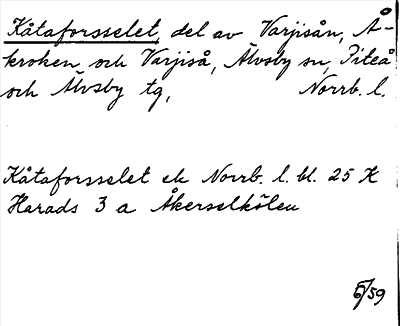 Kåtaforsselet, del av Varjisån, Å-
kroken och Varjiså, Älvsby sn, Piteå
och Älvsby tg, Norrb. l.
Kåtaforsselet ek Norrb. l. bl. 25 K
Harads 3 a Åkerselkölen
6/59